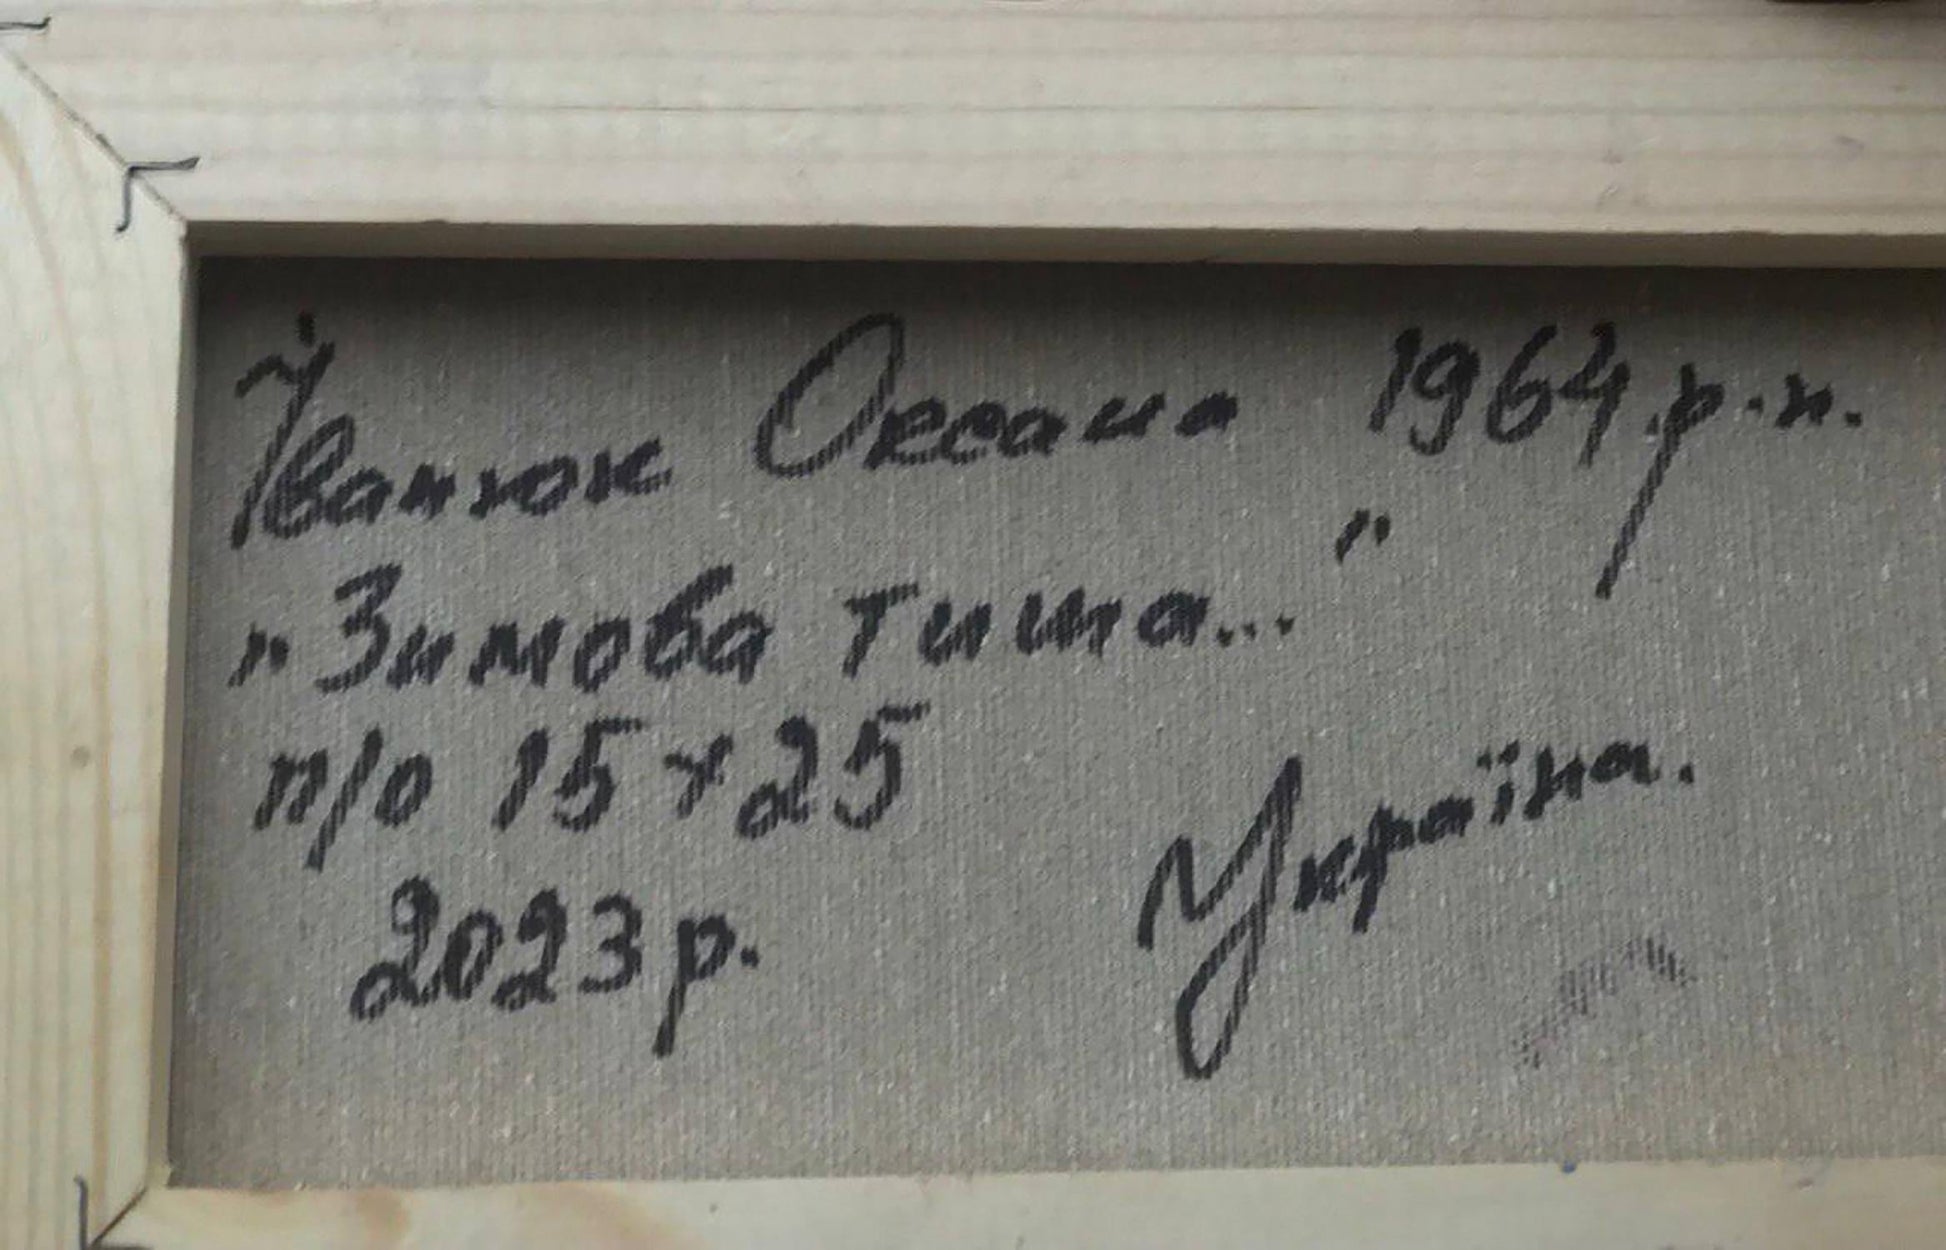 Іванюк Оксана 1964 р.н.
„Зимова тиша..."
п/о 15х25
2023 р.
Україна.